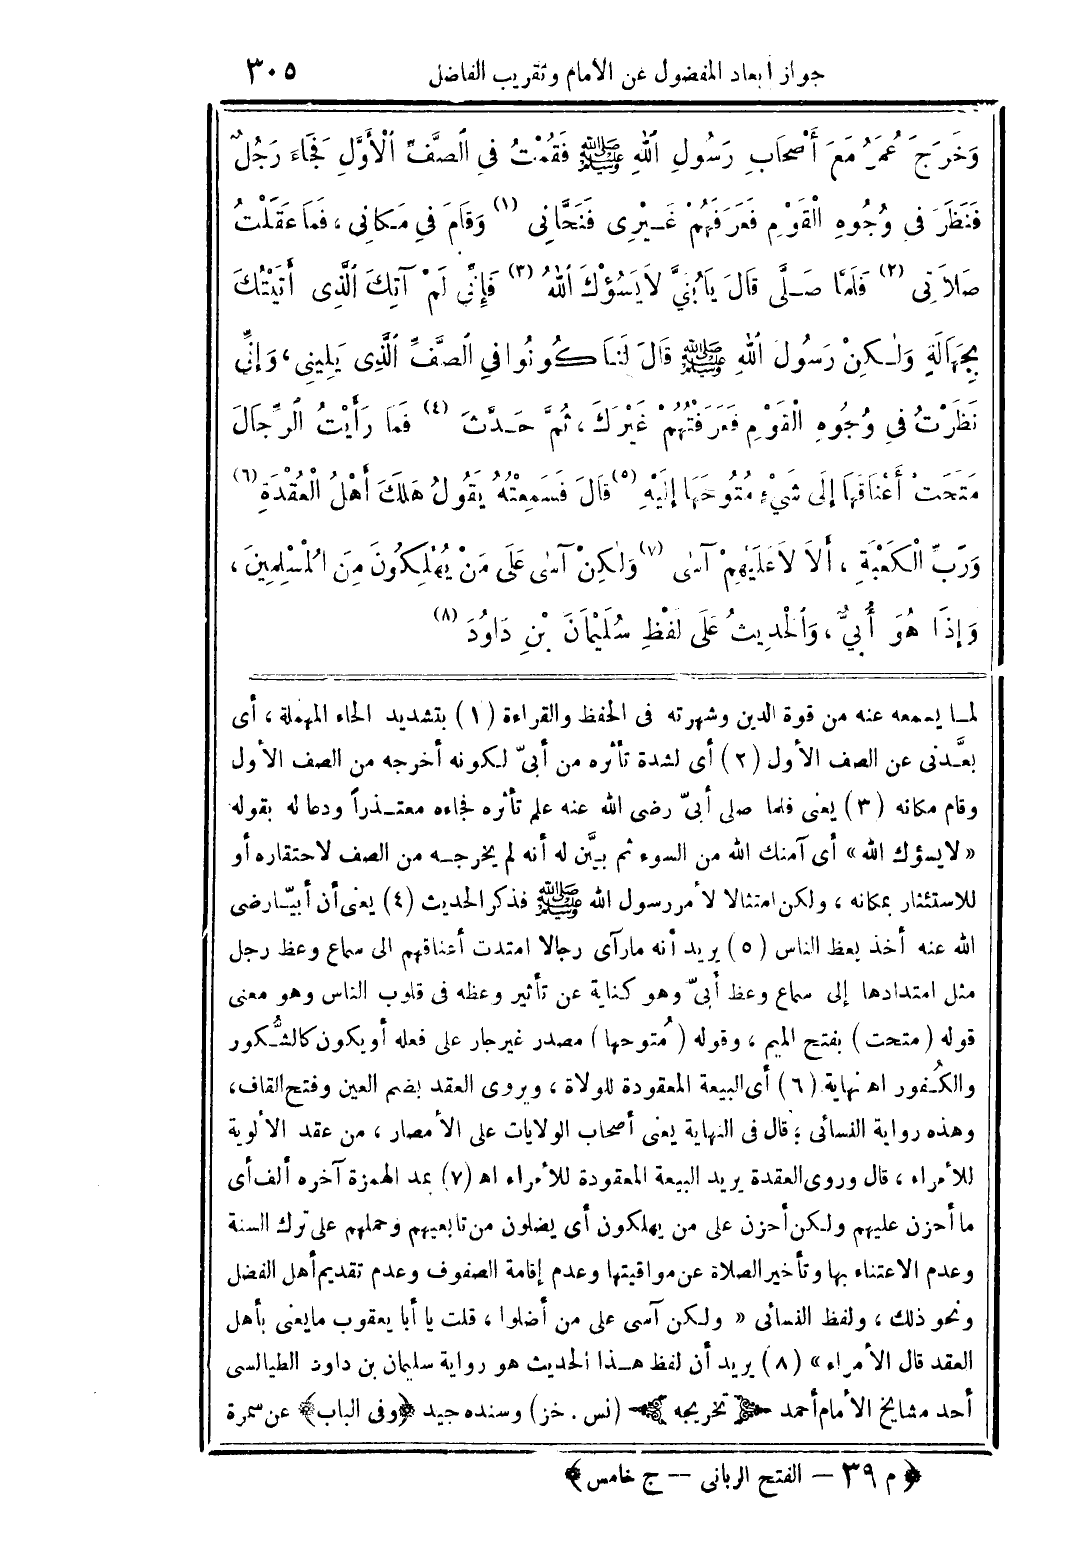 جواز إبعاد المفضول عن الامام وتقريب الفاضل ٣٠٥
وَخَرَجَ عُمَرُ مَعَ أَصْحَابِ رَسُولِ ٱللهِ ﷺ فَقُمْتُ فِي ٱلصَّفِّ ٱلْأَوَّلِ فَجَاءَ رَجُلٌ
فَنَظَرَ فِي وُجُوهِ الْقَوْمِ فَعَرَفَهُمْ غَيْرِى فَنَحَّانِى (١) وَقَامَ فِي مَكَانِى ، فَمَا عَقَلْتُ
صَلَاتِى (٢) فَلَمَّا صَلَّى قَالَ يَا بُنَيَّ لَا يَسُؤْكَ ٱللهُ (٣) فَإِنِّى لَمْ آتِكَ ٱلَّذِى أَتَيْتُكَ
بِجَهَالَةٍ وَلٰكِنْ رَسُولَ ٱللهِ ﷺ قَالَ لَنَا كُونُوا فِي ٱلصَّفِّ ٱلَّذِى يَلِينِى ، وَإِنِّى
نَظَرْتُ فِي وُجُوهِ الْقَوْمِ فَعَرَفْتُهُمْ غَيْرَكَ ، ثُمَّ حَدَّثَ (٤) فَمَا رَأَيْتُ الرِّجَالَ
مَتَحَتْ أَعْنَاقَهَا إِلَى شَيْءٍ مُتُوحَهَا إِلَيْهِ (٥) قَالَ فَسَمِعْتُهُ يَقُولُ هَلَكَ أَهْلُ الْعُقْدَةِ (٦)
وَرَبِّ الْكَعْبَةِ ، أَلَا لَا عَلَيْهِمْ آسَى (٧) وَلٰكِنْ آسَى عَلَى مَنْ يُهْلِكُونَ مِنَ الْمُسْلِمِينَ ،
وَإِذَا هُوَ أُبَيٌّ ، وَٱلْحَدِيثُ عَلَى لَفْظِ سُلَيْمَانَ بْنِ دَاوُدَ (٨)
لمـا يسمعه عنه من قوة الدين وشهرته فى الحفظ والقراءة (١) بتشديد الحاء المهملة ، أى
بعَّدنى عن الصف الأول (٢) أى لشدة تأثره من أبىّ لكونه أخرجه من الصف الأول
وقام مكانه (٣) يعنى فلما صلى أبىّ رضى الله عنه علم تأثره فجاءه معتـذراً ودعا له بقوله
«لا يسؤك الله» أى آمنك الله من السوء ثم بيَّن له أنه لم يخرجـه من الصف لاحتقاره أو
للاستئثار بمكانه ، ولكن امتثالا لأمر رسول الله ﷺ فذكر الحديث (٤) يعنى أن أبيّا رضى
الله عنه أخذ يعظ الناس (٥) يريد أنه مارآى رجالا امتدت أعناقهم الى سماع وعظ رجل
مثل امتدادها إلى سماع وعظ أبىّ وهو كناية عن تأثير وعظه فى قلوب الناس وهو معنى
قوله (متحت) بفتح الميم ، وقوله (مُتوحها) مصدر غير جار على فعله أو يكون كالشُّكور
والكُفور اه نهاية (٦) أى البيعة المعقودة للولاة ، ويروى العقد بضم العين وفتح القاف ،
وهذه رواية النسائى ؛ قال فى النهاية يعنى أصحاب الولايات على الأمصار ، من عقد الألوية
للأمراء ، قال وروى العقدة يريد البيعة المعقودة للأمراء اه (٧) بمد الهمزة آخره ألف أى
ما أحزن عليهم ولكن أحزن على من يهلكون أى يضلون من تابعيهم وحملهم على ترك السنة
وعدم الاعتناء بها وتأخير الصلاة عن مواقيتها وعدم إقامة الصفوف وعدم تقديم أهل الفضل
ونحو ذلك ، ولفظ النسائى « ولكن آسى على من أضلوا ، قلت يا أبا يعقوب مايعنى بأهل
العقد قال الأمراء» (٨) يريد أن لفظ هـذا الحديث هو رواية سليمان بن داود الطيالسى
أحد مشايخ الامام أحمد تخريجه (نس . خز) وسنده جيد ﴿وفى الباب﴾ عن سمرة
﴿م ٣٩ – الفتح الربانى – ج خامس﴾